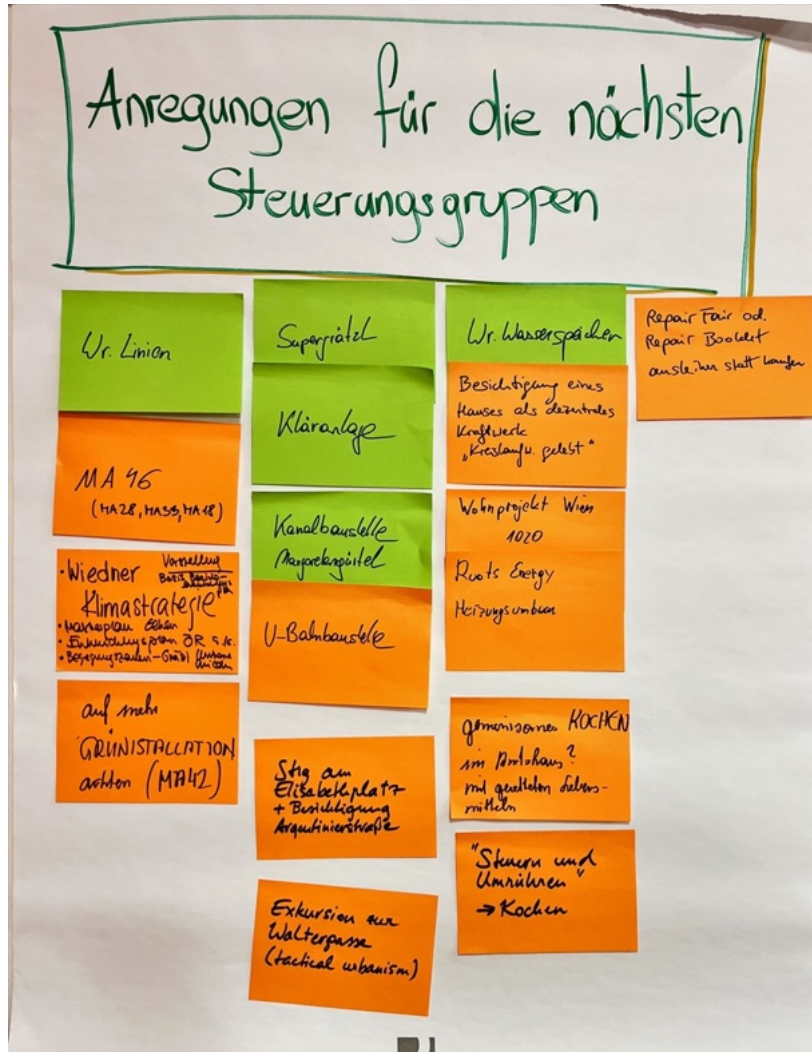 Anregungen für die nächsten
Steuerungsgruppen
Wr. Linien
MA 46
(MA28, MA33, MA18)
• Wiedner
Vorstellung
Klimastrategie
• Masterplan Gehen
• Entwicklungsplan ÖR s.k.
• Begegnungszonen-Grätzl
auf mehr
GRÜNISTALLATION
achten (MA42)
Supergrätzl
Kläranlage
Kanalbaustelle
Margaretengürtel
U-Bahnbaustelle
Stg am
Elisabethplatz
+ Besichtigung
Argentinierstraße
Exkursion zur
Waltergasse
(tactical urbanism)
Wr. Wasserspeichen
Besichtigung eines
Hauses als dezentrales
Kraftwerk
„Kreislaufw. gelebt"
Wohnprojekt Wien
1020
Roots Energy
Heizungsumbau
gemeinsames KOCHEN
im Amtshaus?
mit geretteten Lebens-
mitteln
"Steuern und
Umrühren"
→ Kochen
Repair Fair od.
Repair Booklet
ausleihen statt kaufen